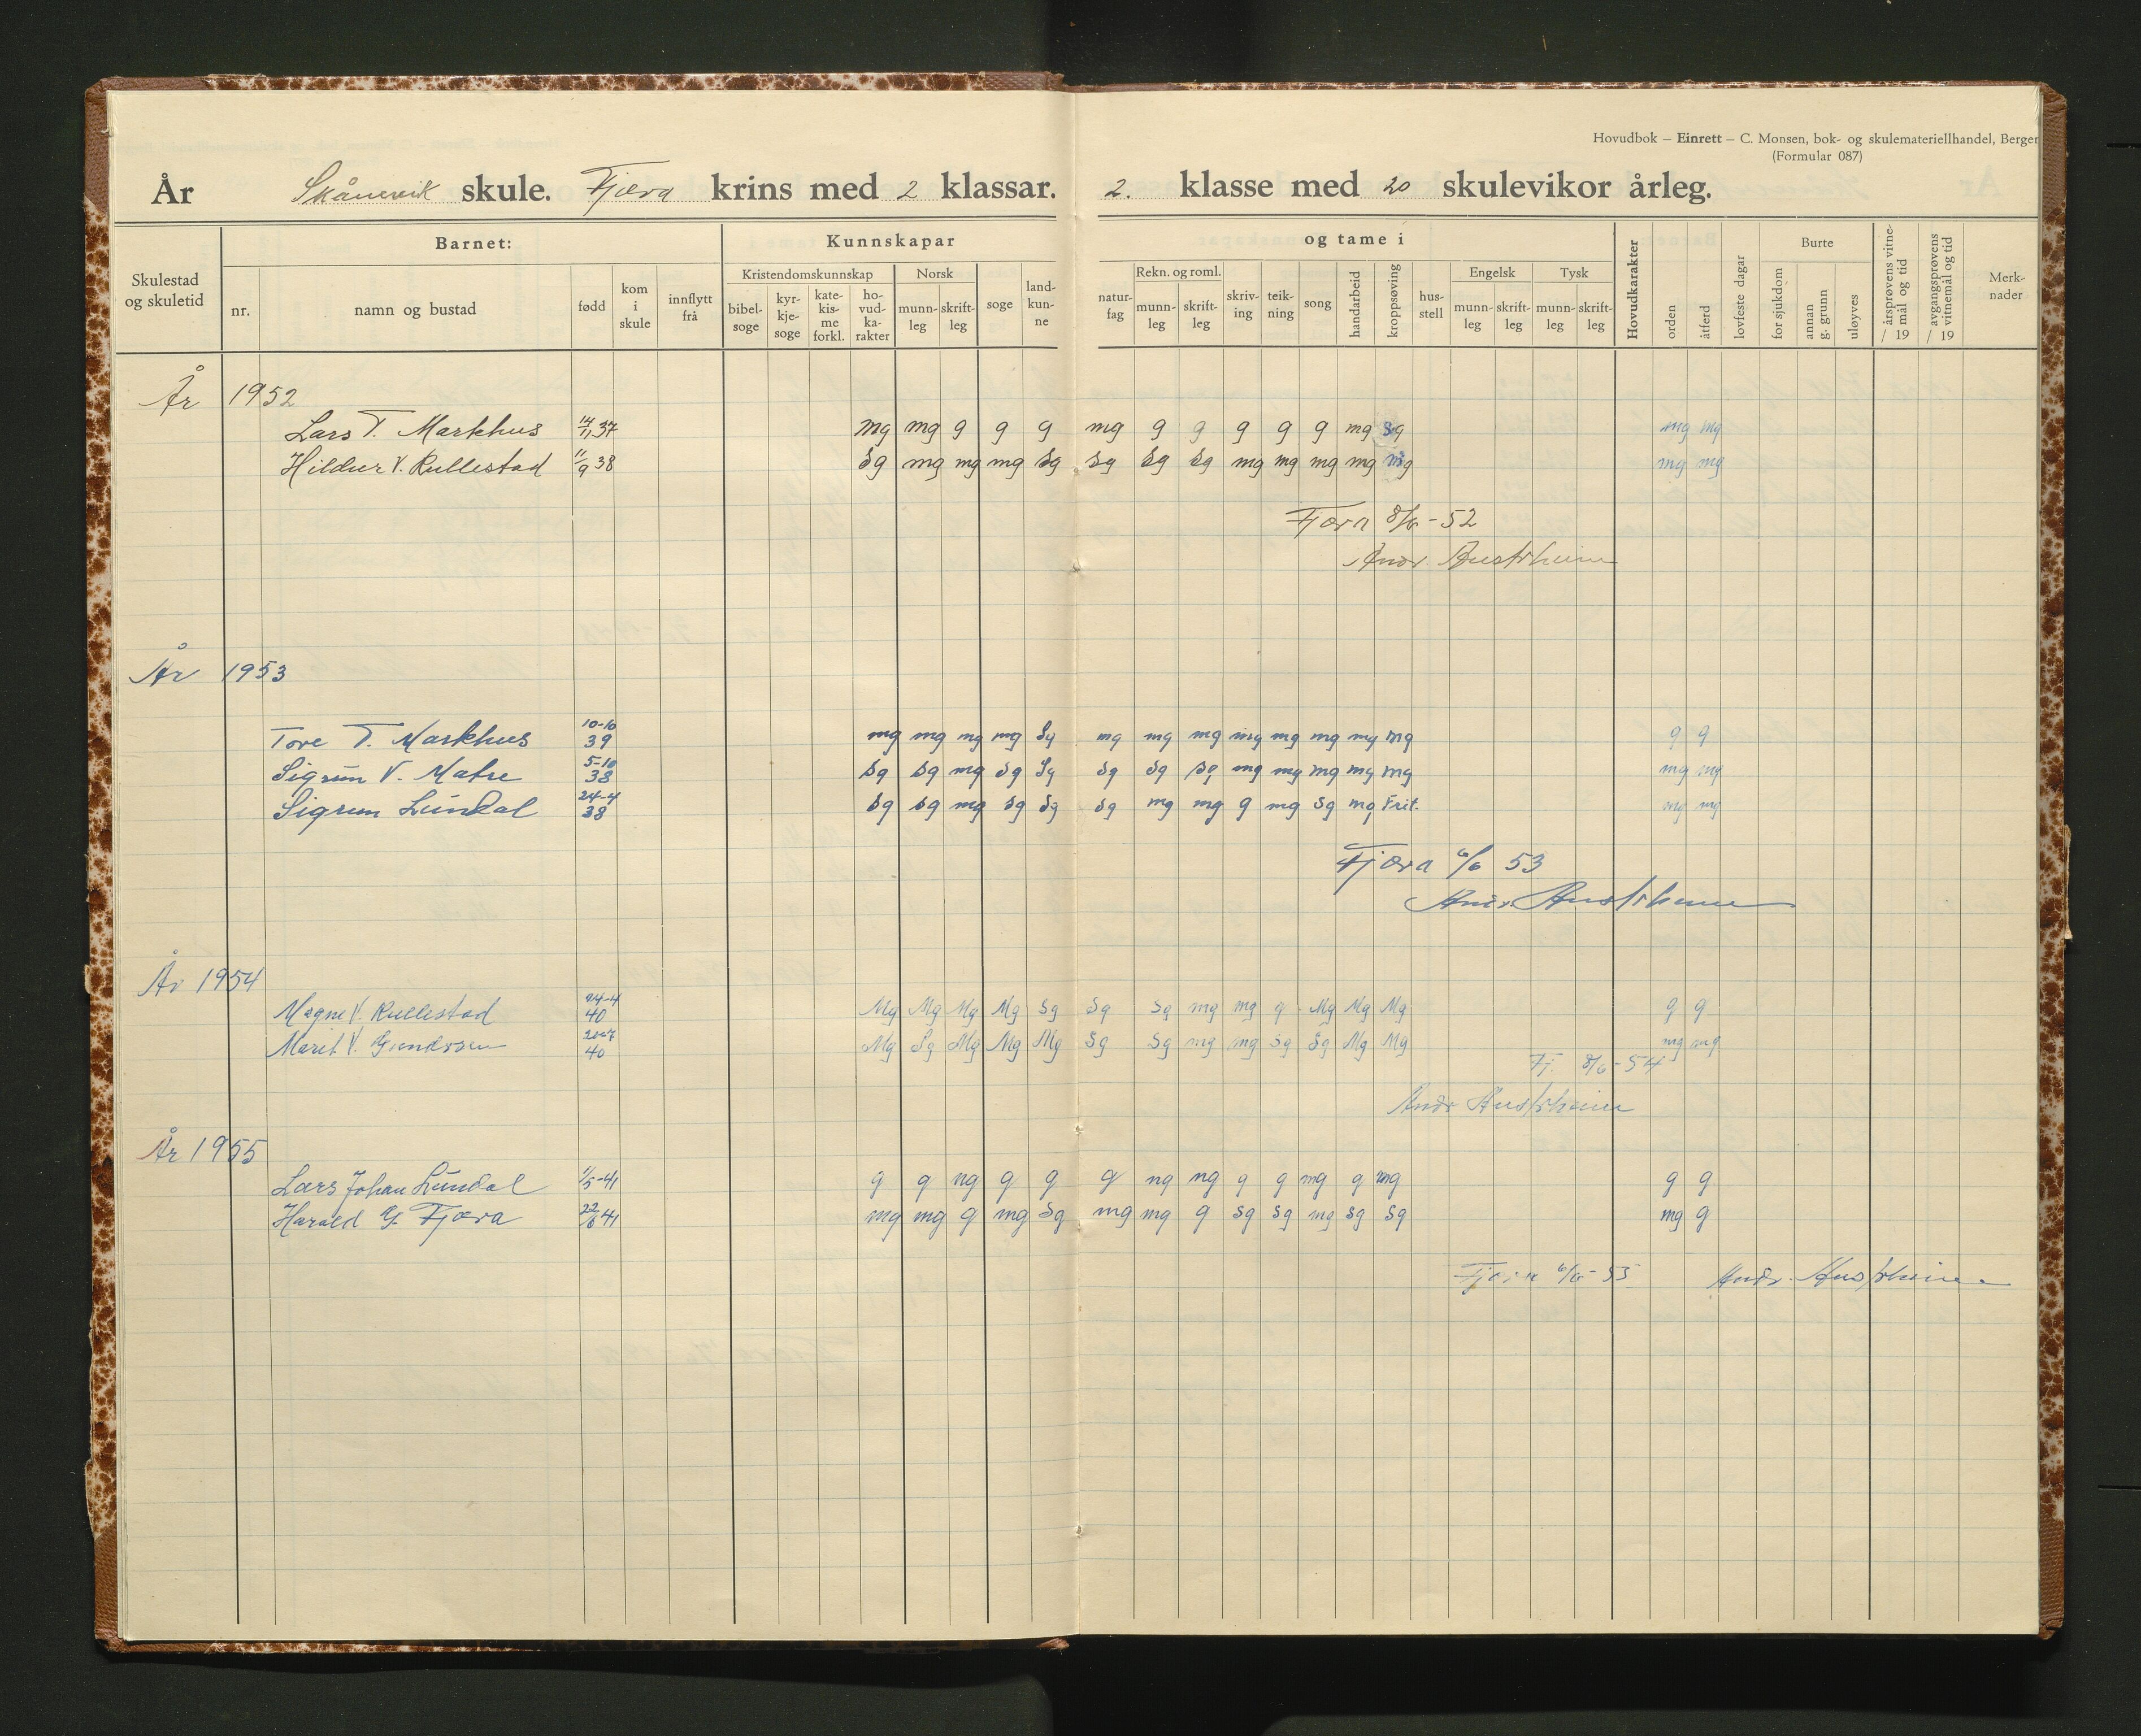 Hovudbok – Einrett – C. Monsen, bok- og skulemateriellhandel, Bergen
(Formular 087)
År Skånevik skule. Fjæra krins med 2 klassar. 2. klasse med 20 skulevikor årleg.
Barnet: Kunnskapar og tame i
Skulestad og skuletid nr. namn og bustad fødd kom i skule innflytt frå
Kristendomskunnskap bibel-soge kyr-kje-soge kate-kis-me forkl. ho-vud-ka-rakter
Norsk munn-leg skrift-leg soge land-kun-ne
natur-fag Rekn. og roml. munn-leg skrift-leg skriv-ing teik-ning song handarbeid kroppsøving hus-stell
Engelsk munn-leg skrift-leg Tysk munn-leg skrift-leg
Hovudkarakter orden åtferd lovfeste dagar Burte for sjukdom annan g. grunn uløyves
årsprøvens vitne-mål og tid / 19 avgangsprøvens vitnemål og tid / 19 Merk-nader
År 1952
Lars T. Markhus 14/11 37 mg mg g g g mg g g g g g mg sg mg mg
Hildur V. Rullestad 11/9 38 sg mg mg mg sg sg sg sg mg mg mg mg mg mg mg
Fjæra 8/6-52
Andr. Austrheim
År 1953
Tore T. Markhus 10-10 39 mg mg mg mg Sg mg mg mg mg mg mg mg mg g g
Sigrun V. Matre 5-10 38 sg sg mg sg Sg sg sg sg mg mg mg mg mg mg mg
Sigrun Lundal 24-4 38 sg sg mg sg sg sg mg mg g mg sg mg Frit. mg mg
Fjæra 6/6 53
Andr. Austrheim
År 1954
Magne V. Rullestad 24-4 40 Mg Mg Mg Mg Sg Sg Sg mg mg g Mg Mg Mg g g
Marit V. Gundersen 40 Mg Sg Mg Mg Mg Sg Sg mg mg Sg Sg Mg Mg mg mg
Fj. 8/6-54
Andr Austrheim
År 1955
Lars Johan Lundal 1/5-41 g g ng g g g ng ng g g mg g mg g g
Harald G. Fjæra 22/6 41 mg mg g mg Sg mg mg g sg sg mg sg sg mg g
Fjæra 6/6-55 Andr. Austrheim